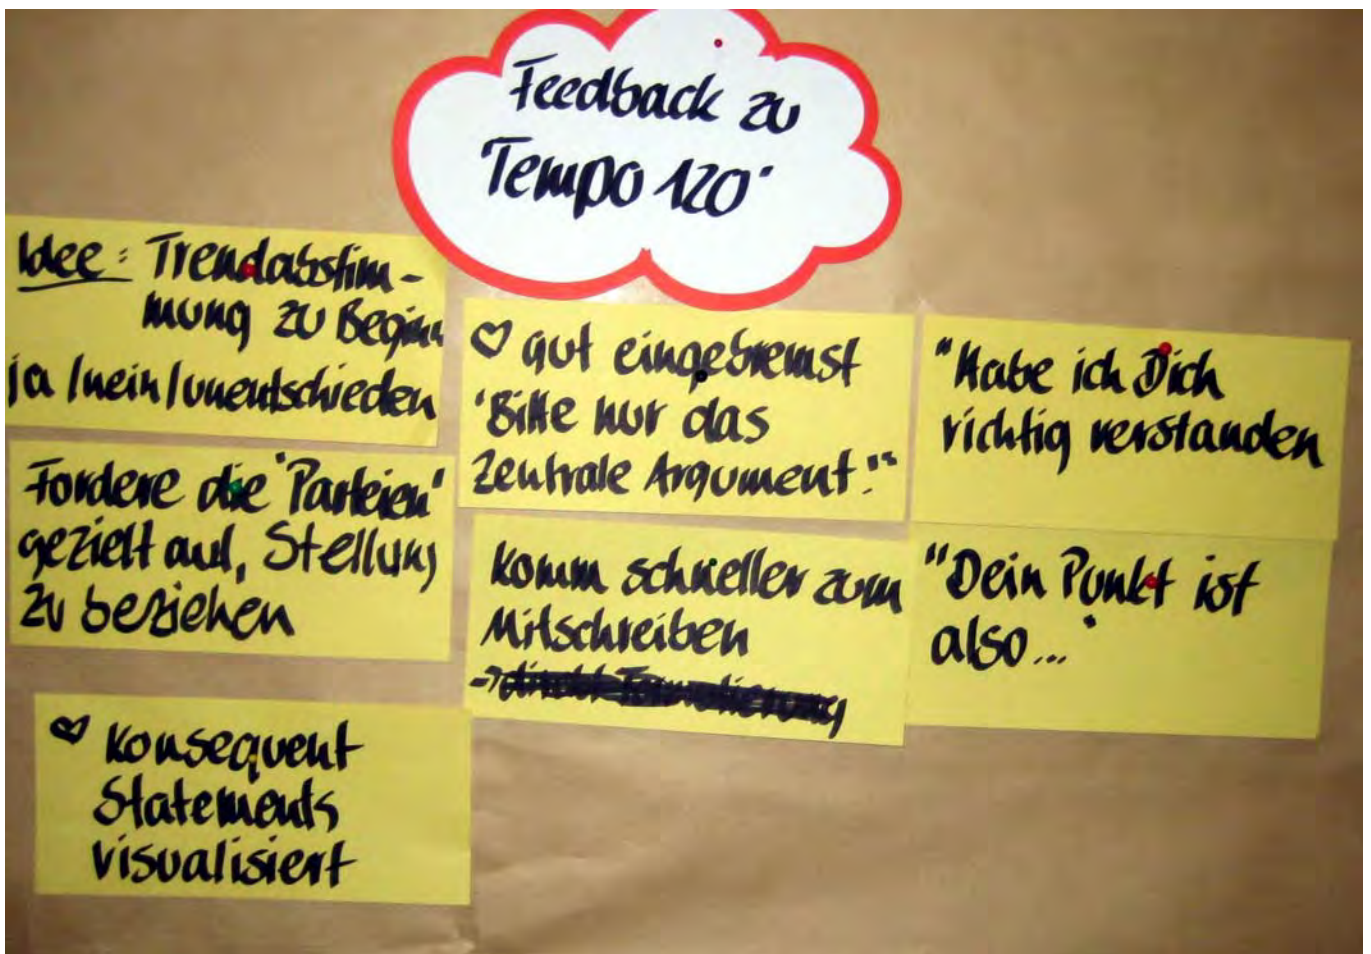 Feedback zu
"Tempo 120"
Idee: Trendabstim-
mung zu Beginn
ja/nein/unentschieden
Fordere die "Parteien"
gezielt auf, Stellung
zu beziehen
♡ Konsequent
Statements
visualisiert
♡ gut eingebremst
"Bitte nur das
zentrale Argument!"
Komm schneller zum
Mitschreiben
→
"Habe ich Dich
richtig verstanden
"Dein Punkt ist
also..."